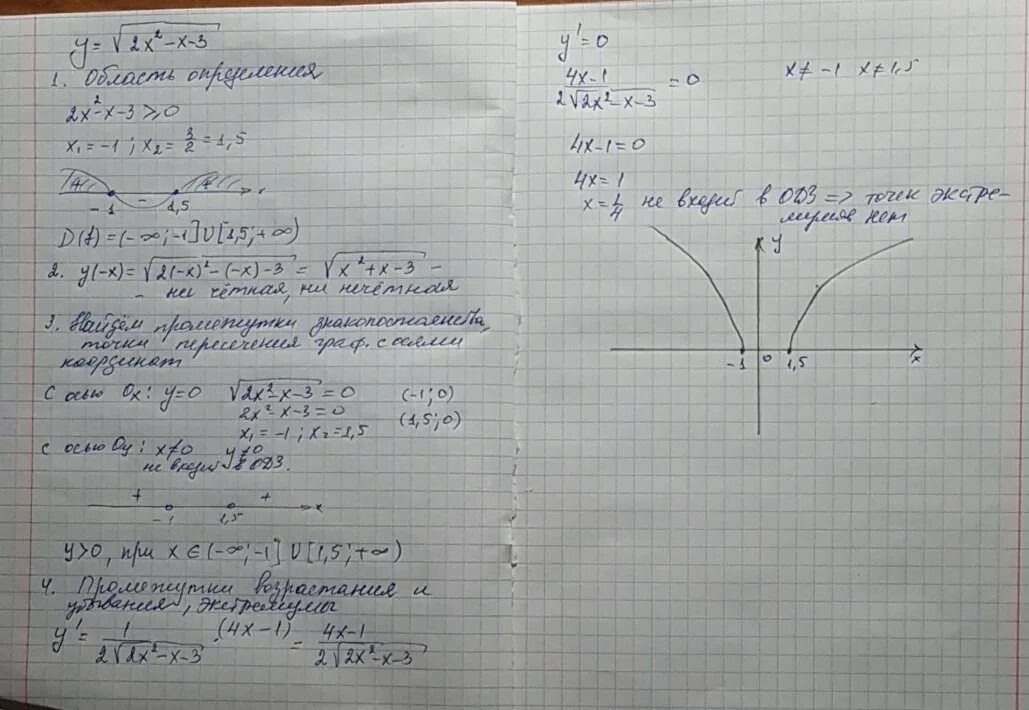 y = √(2x² - x - 3)
1. Область определения
2x² - x - 3 ⩾ 0
x₁ = -1 ; x₂ = 3/2 = 1,5
+ - + x
-1 1,5
D(f) = (-∞; -1] U [1,5; +∞)
2. y(-x) = √(2(-x)² - (-x) - 3) = √(x² + x - 3) -
- ни чётная, ни нечётная
3. Найдём промежутки знакопостоянства,
точки пересечения граф. с осями
координат
С осью Ox: y=0 √(2x² - x - 3) = 0 (-1; 0)
2x² - x - 3 = 0 (1,5; 0)
x₁ = -1 ; x₂ = 1,5
с осью Oy: x≠0 y≠0
не входит в ОДЗ.
+ + x
-1 1,5
y>0, при x ∈ (-∞; -1] U [1,5; +∞)
4. Промежутки возрастания и
убывания, экстремумы
y' = 1/(2√(2x² - x - 3)) · (4x - 1) = (4x - 1)/(2√(2x² - x - 3))
y' = 0
(4x - 1)/(2√(2x² - x - 3)) = 0 x ≠ -1 x ≠ 1,5
4x - 1 = 0
4x = 1
x = 1/4 не входит в ОДЗ => точек экстре-
мумов нет
y
-1 0 1,5 x